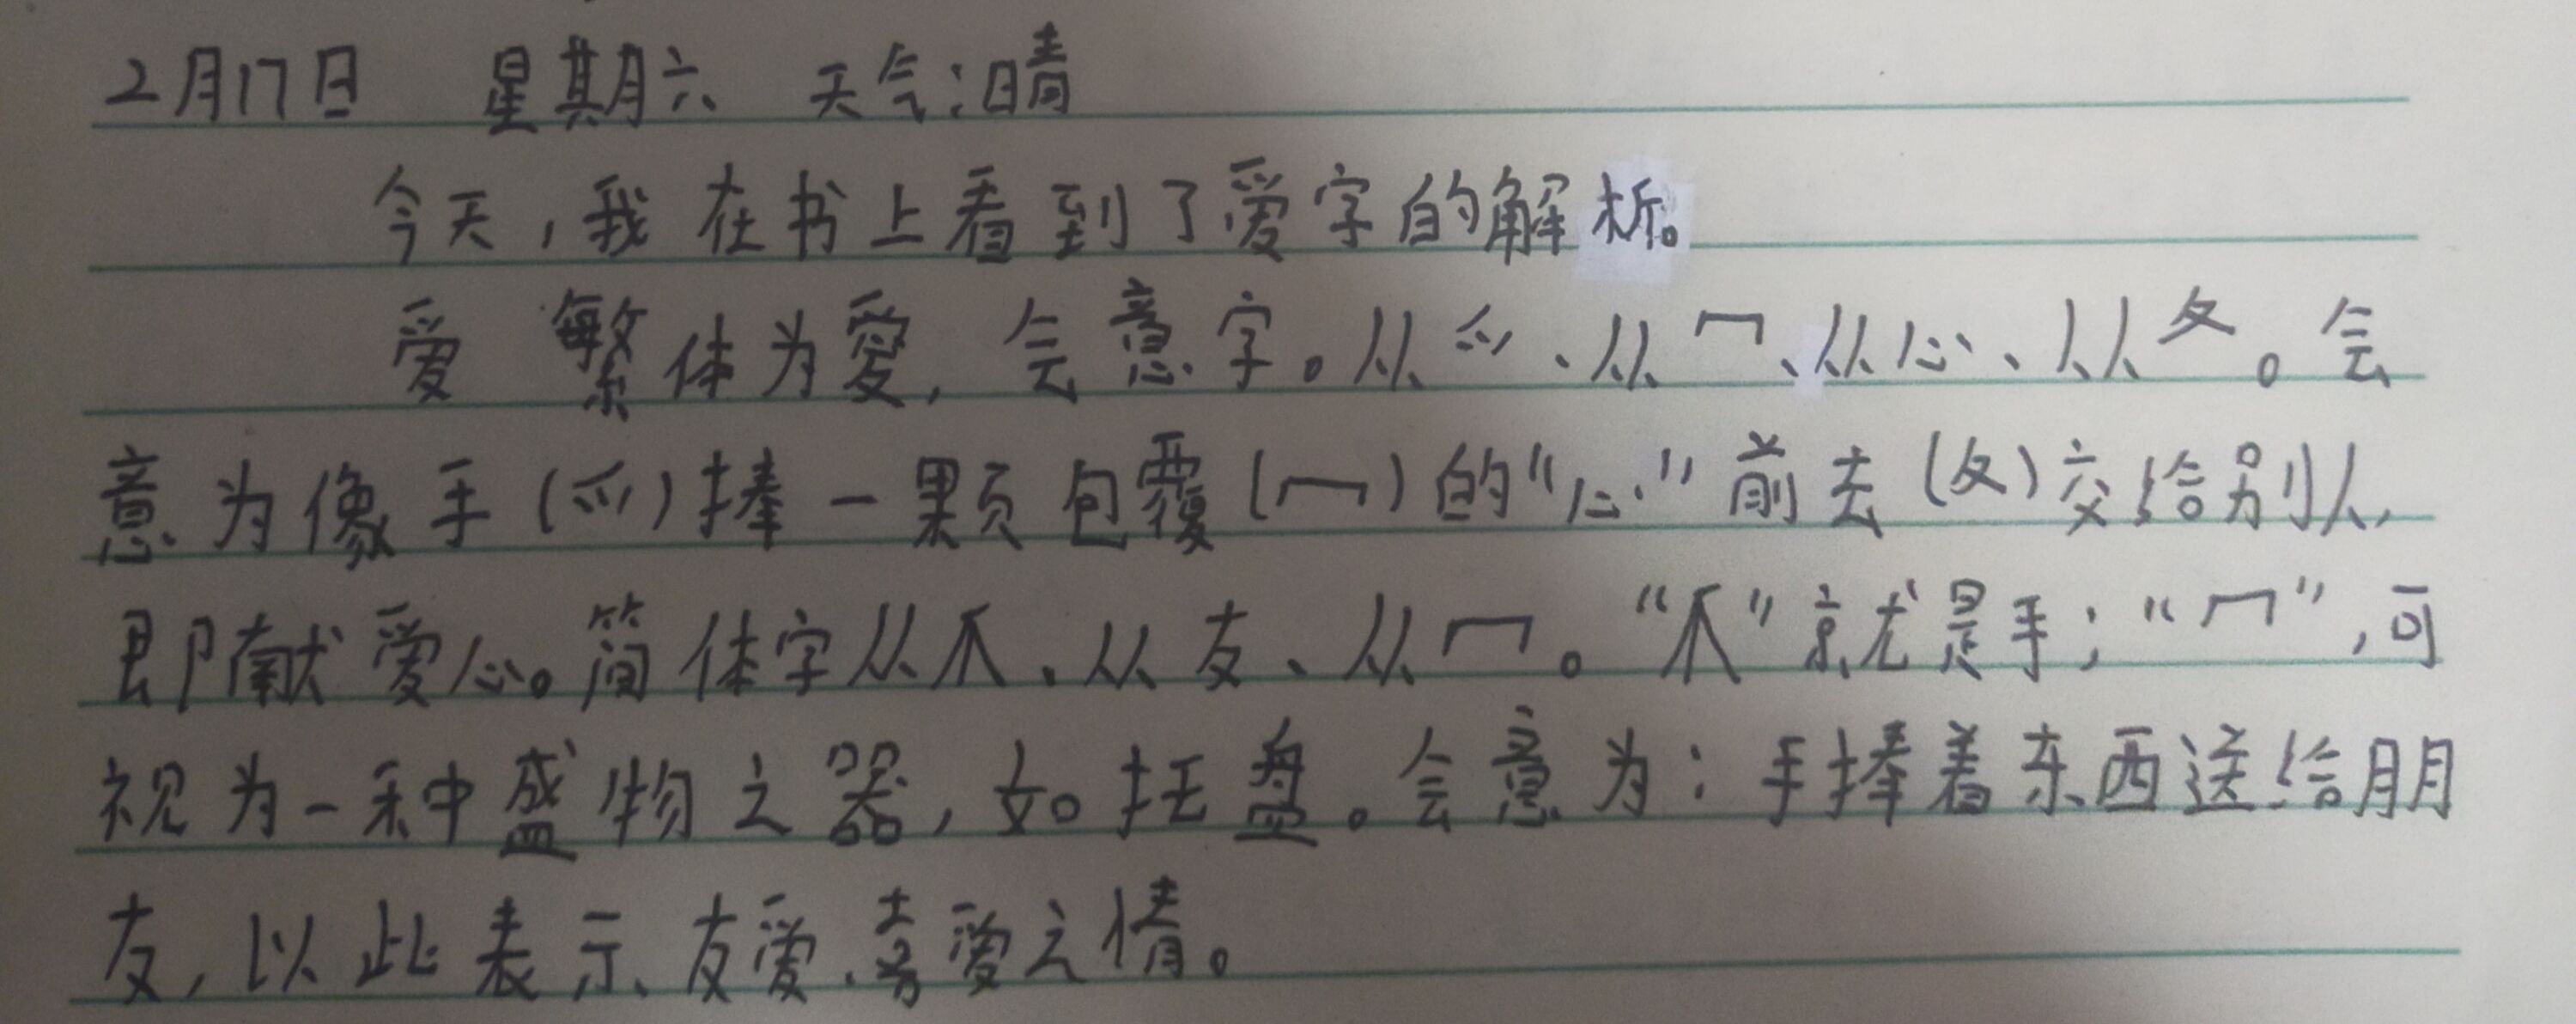 2月17日 星期六 天气:晴
今天,我在书上看到了爱字的解析。
爱 繁体为愛,会意字。从爫、从冖、从心、从夂。会
意为像手(爫)捧一颗包覆(冖)的“心”前去(夂)交给别人,
即献爱心。简体字从爪、从友、从冖。“爪”就是手;“冖”,可
视为一种盛物之器,如托盘。会意为:手捧着东西送给朋
友,以此表示友爱、喜爱之情。